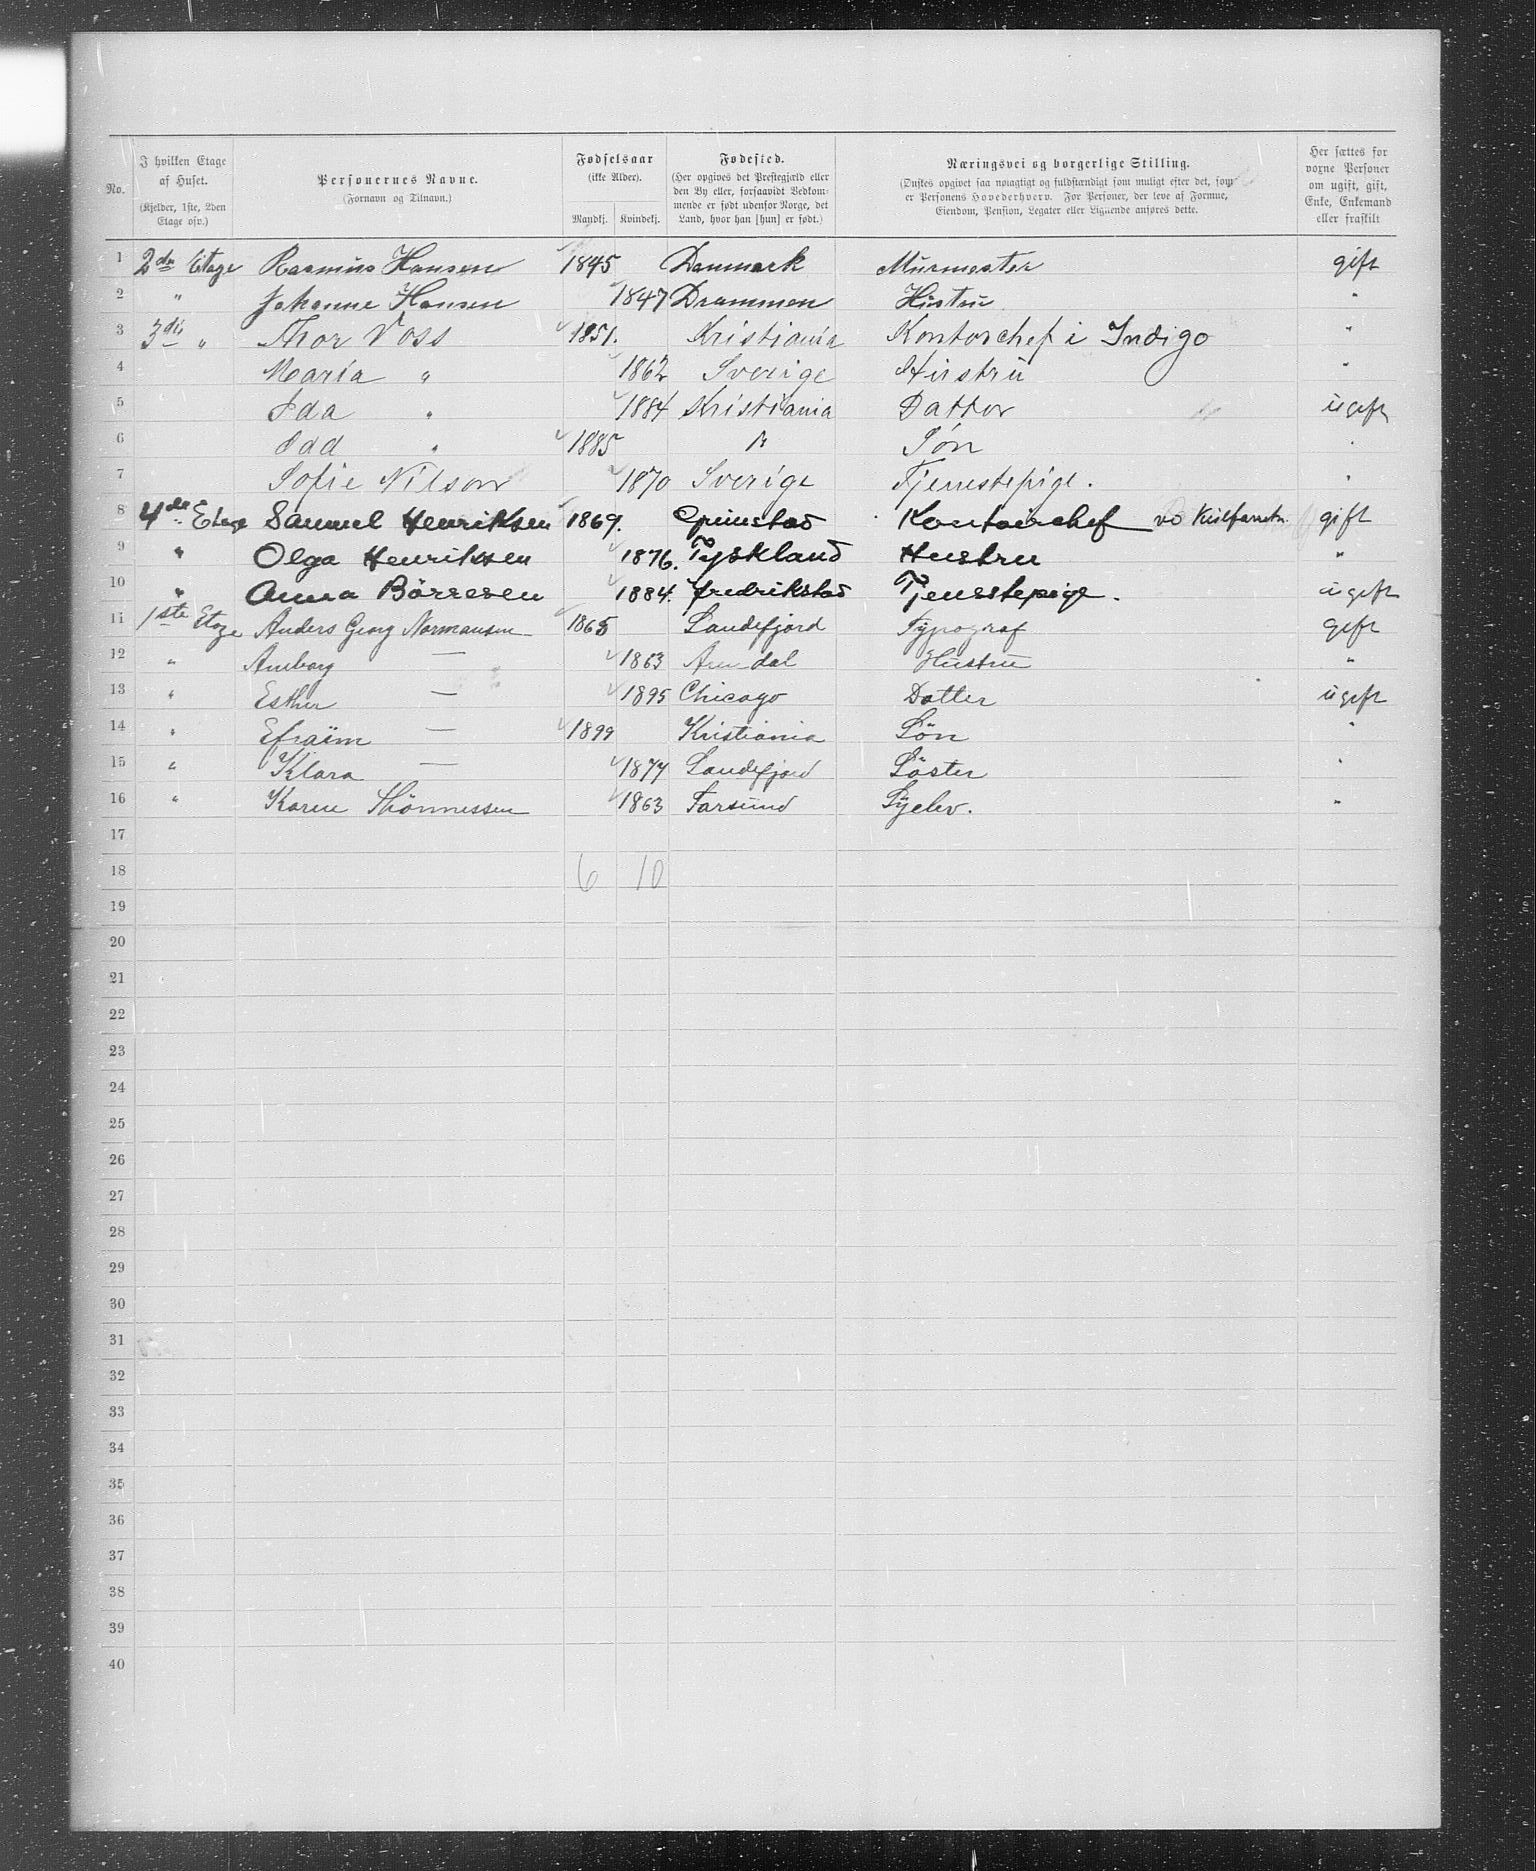 No. | I hvilken Etage af Huset. (Kjelder, 1ste, 2den Etage osv.) | Personernes Navne. (Fornavn og Tilnavn.) | Fødselsaar (ikke Alder). Mandkj. | Kvindekj. | Fødested. (Her opgives det Prestegjæld eller den By eller, forsaavidt Vedkommende er født udenfor Norge, det Land, hvor han [hun] er født.) | Næringsvei og borgerlige Stilling. (Ønskes opgivet saa nøiagtigt og fuldstændigt som muligt efter det, som er Personens Hovederhverv. For Personer, der leve af Formue, Eiendom, Pension, Legater eller Lignende anføres dette. | Her sættes for voxne Personer om ugift, gift, Enke, Enkemand eller fraskilt
1 2den Etage Rasmus Hansen 1845 Danmark Murmester gift
2 " Johanne Hansen 1847 Drammen Hustru "
3 3die " Thor Voss 1851. Kristiania Kontorchef i Indigo "
4 Maria " 1862 Sverige Hustru "
5 Ida " 1884 Kristiania Datter ugift
6 Odd " 1885 " Søn "
7 Sofie Nilson 1870 Sverige Tjenestepige. "
8 4de Etage Samuel Henriksen 1869. Grimstad Kontoirchef gift
9 " Olga Henriksen 1876. Tyskland Hustru "
10 " Anna Börresen 1884. Fredrikstad Tjenestepige. ugift
11 1ste Etage Anders Georg Normansen 1865 Sandefjord Typograf gift
12 " Amborg — 1863 Arendal Hustru "
13 " Esther — 1895 Chicago Datter ugift
14 " Efraim — 1899 Kristiania Sön "
15 " Klara — 1877 Sandefjord Söster "
16 " Karen Thönnessen 1863 Farsund Syelev. "
17
18 6 10
19
20
21
22
23
24
25
26
27
28
29
30
31
32
33
34
35
36
37
38
39
40